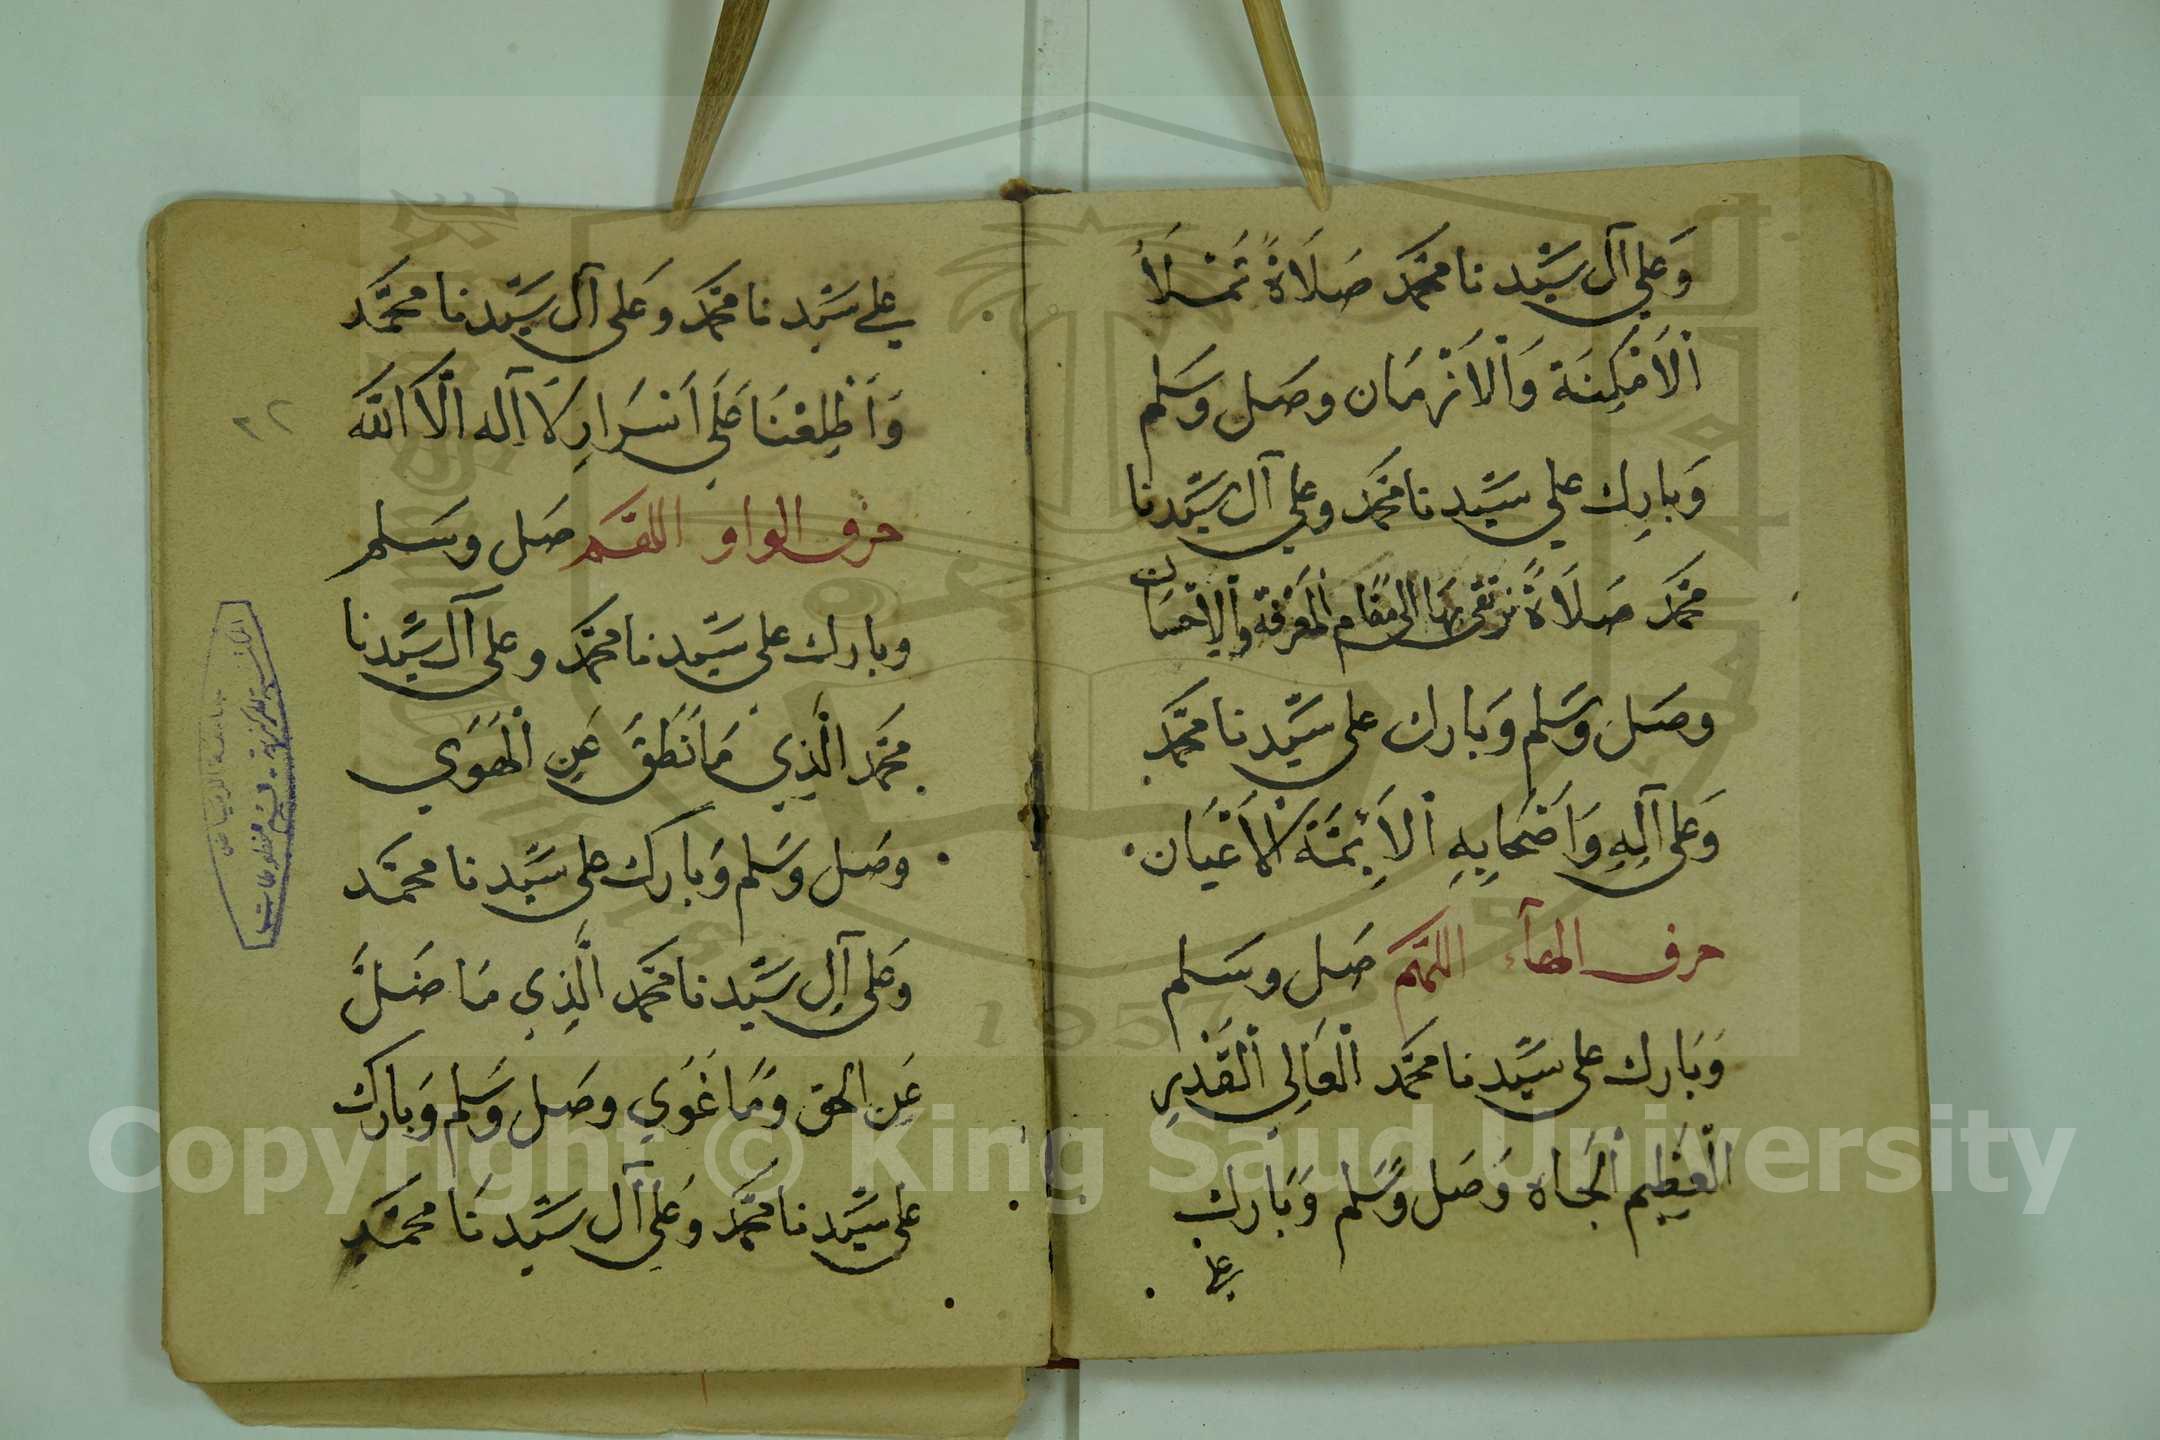 وَعَلى آل سَيِّدنا محمَّد صَلَاةً تَمْلَأُ
اْلاَمْكِنَة وَاْلاَزْمَان وصَل وسَلم
وَبارِك علي سَيّدنا محمَّد وعلي آل سَيّدنا
محمَّد صَلَاةً نرتقى بهَا الى مقَام الْمَعْرفة والْاِحْسَان
وصَل وَسَلم وَبارك على سَيّدنا محمَّد
وَعَلى آلِهِ وَاَصْحَابِهِ اْلاَئِمَّة اْلاَعْيَان
حرف الهآء اللهم صَل وسَلم
وَبَارك على سَيّدنا محمَّد الْعَالِي الْقَدْرِ
الْعَظِيم الْجَاه وَصَل وَسَلم وَبَارك
على
علي سَيّدنا محمَّد وعَلى آل سَيّدنا محمَّد
وَاَطْلِعْنَا عَلَى اَسْرَارِ لَا اِله الّا الله
حرف الواو اللهم صَل وسَلم
وبارك على سَيّدنا محمَّد وعلى آل سَيّدنا
محمَّد الَّذِي مَا نَطَقَ عَنِ الْهَوَي
وصَل وسَلم وَبارك على سَيّدنا محمَّد
وعَلى آلِ سَيّدنا محمَّد الَّذِي مَا ضَلَّ
عَن الحق وَمَا غَوَي وصَل وَسَلم وَبارك
على سَيّدنا محمَّد وعَلى آل سَيّدنَا محمَّد
٢٢
جامعة الرياض
المكتبة المركزية - قسم المخطوطات
1957
Copyright © King Saud University